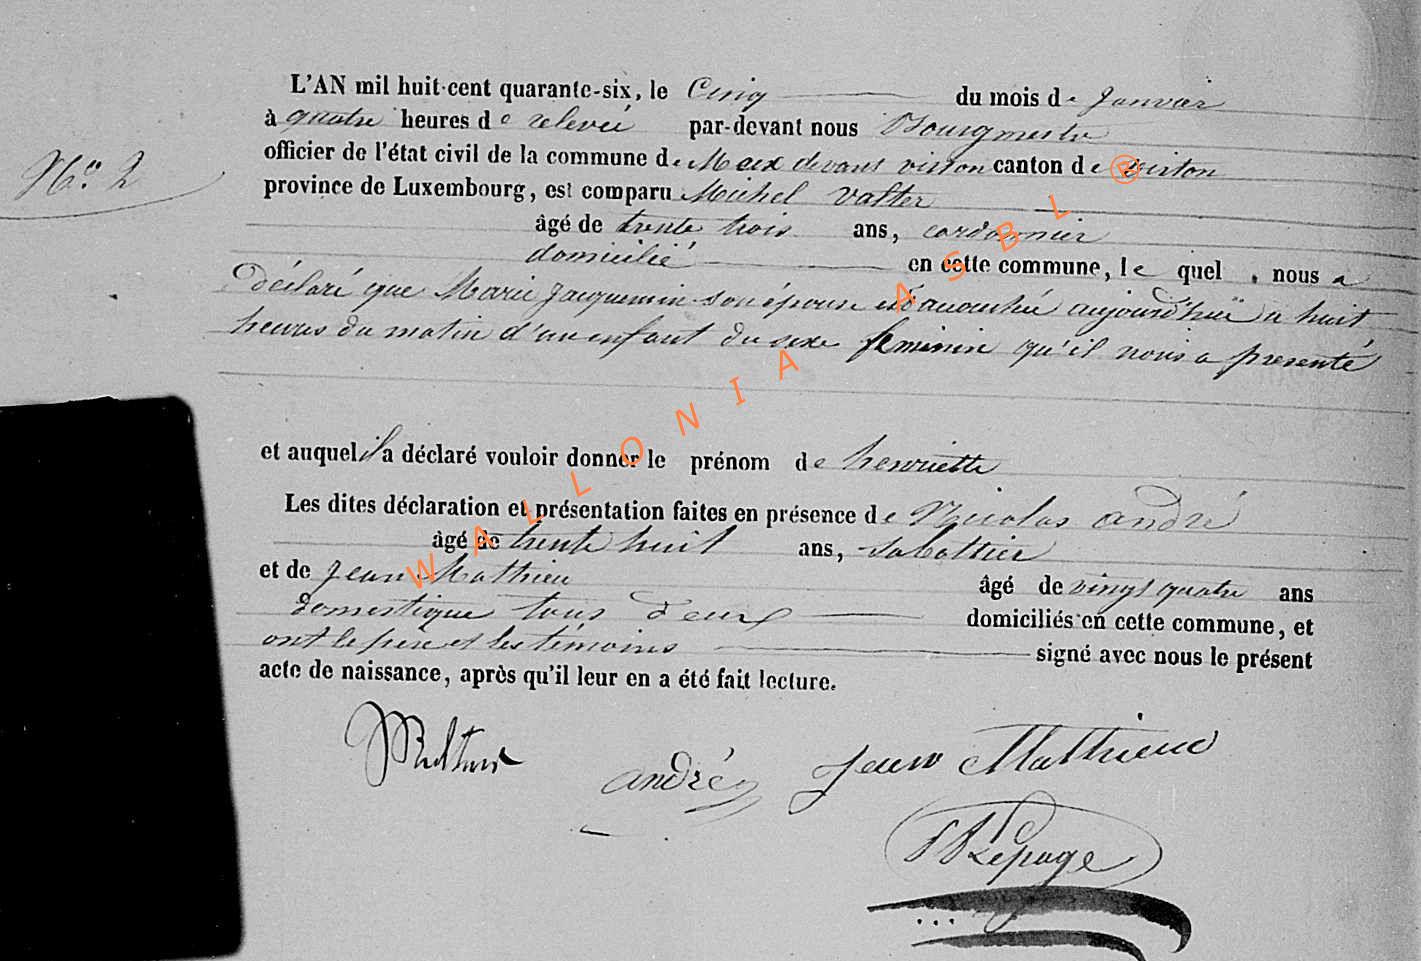 L'AN mil huit-cent quarante-six, le Cinq du mois de Janvier
à quatre heures de relevée par-devant nous Bourgmestre
officier de l'état civil de la commune de Meix devant virton canton de virton
N.o 2
province de Luxembourg, est comparu Michel Valter
âgé de trente trois ans, cordonnier
domicilié en cette commune, le quel, nous a
déclaré que Marie Jacquemin son épouse est accouchée aujourd'hui a huit
heures du matin d'un enfant du sexe feminin qu'il nous a presenté
et auquel il a déclaré vouloir donner le prénom de henriette
Les dites déclaration et présentation faites en présence de Nicolas andré
âgé de trente huit ans, sabottier
et de Jean Mathieu âgé de vingt quatre ans
domestique tous deux domiciliés en cette commune, et
ont le père et les témoins signé avec nous le présent
acte de naissance, après qu'il leur en a été fait lecture.
andré Jean Mathieu
Lepage
WALLONIA ASBL ®